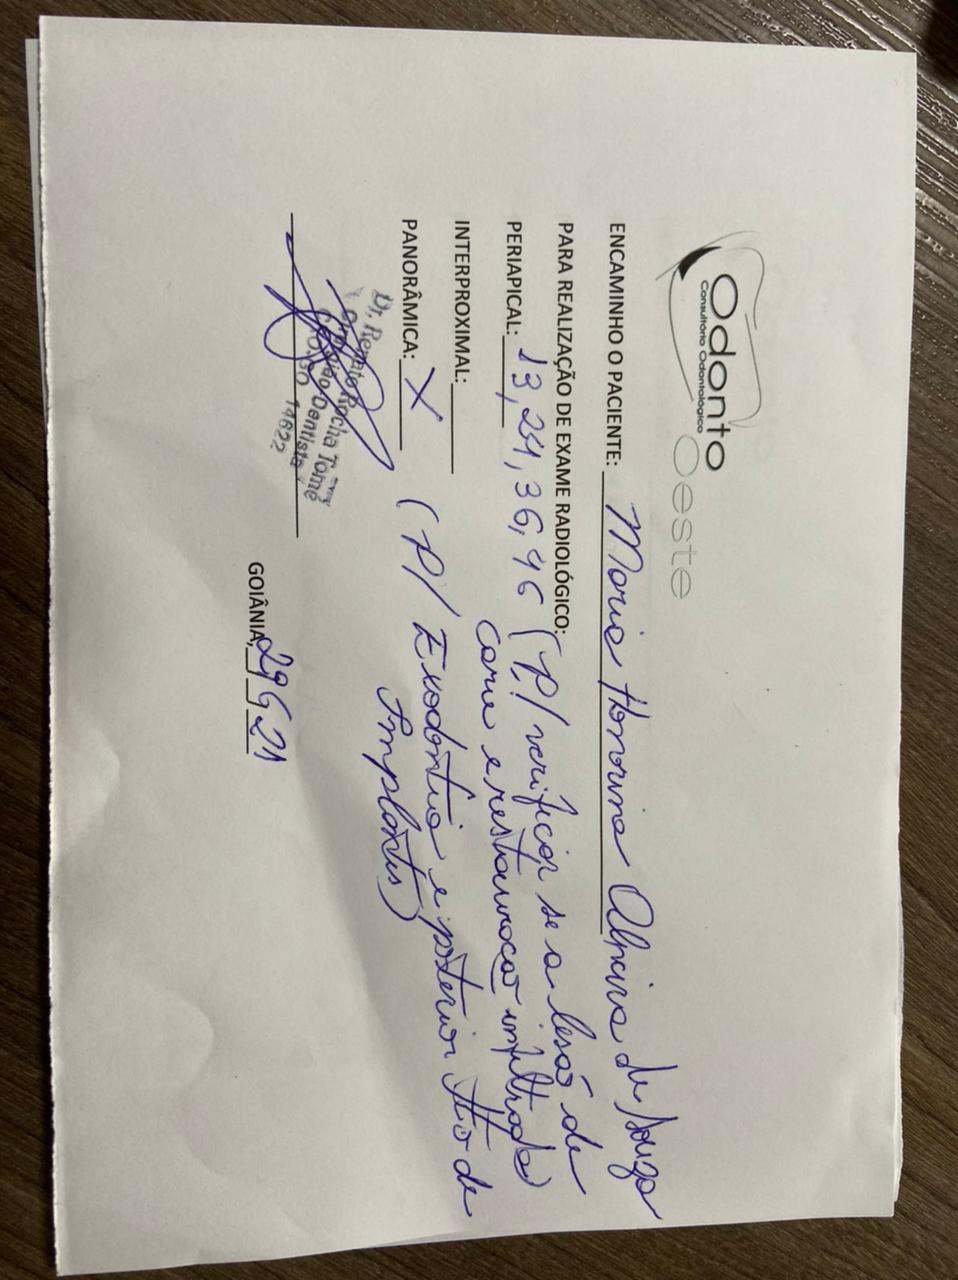 Odonto Oeste
Consultório Odontológico
ENCAMINHO O PACIENTE: Maria Honorina Alpina de Souza
PARA REALIZAÇÃO DE EXAME RADIOLÓGICO:
PERIAPICAL: 13, 24, 36, 46 (P/ verificar se a lesão de
carie e restauração infiltrada)
INTERPROXIMAL:
PANORÂMICA: X (P/ Exodontia e posterior tto de
Implantes)
Dr. Renato Rocha Tomé
Cirurgião Dentista
CRO-GO 14822
GOIÂNIA, 29 6 21